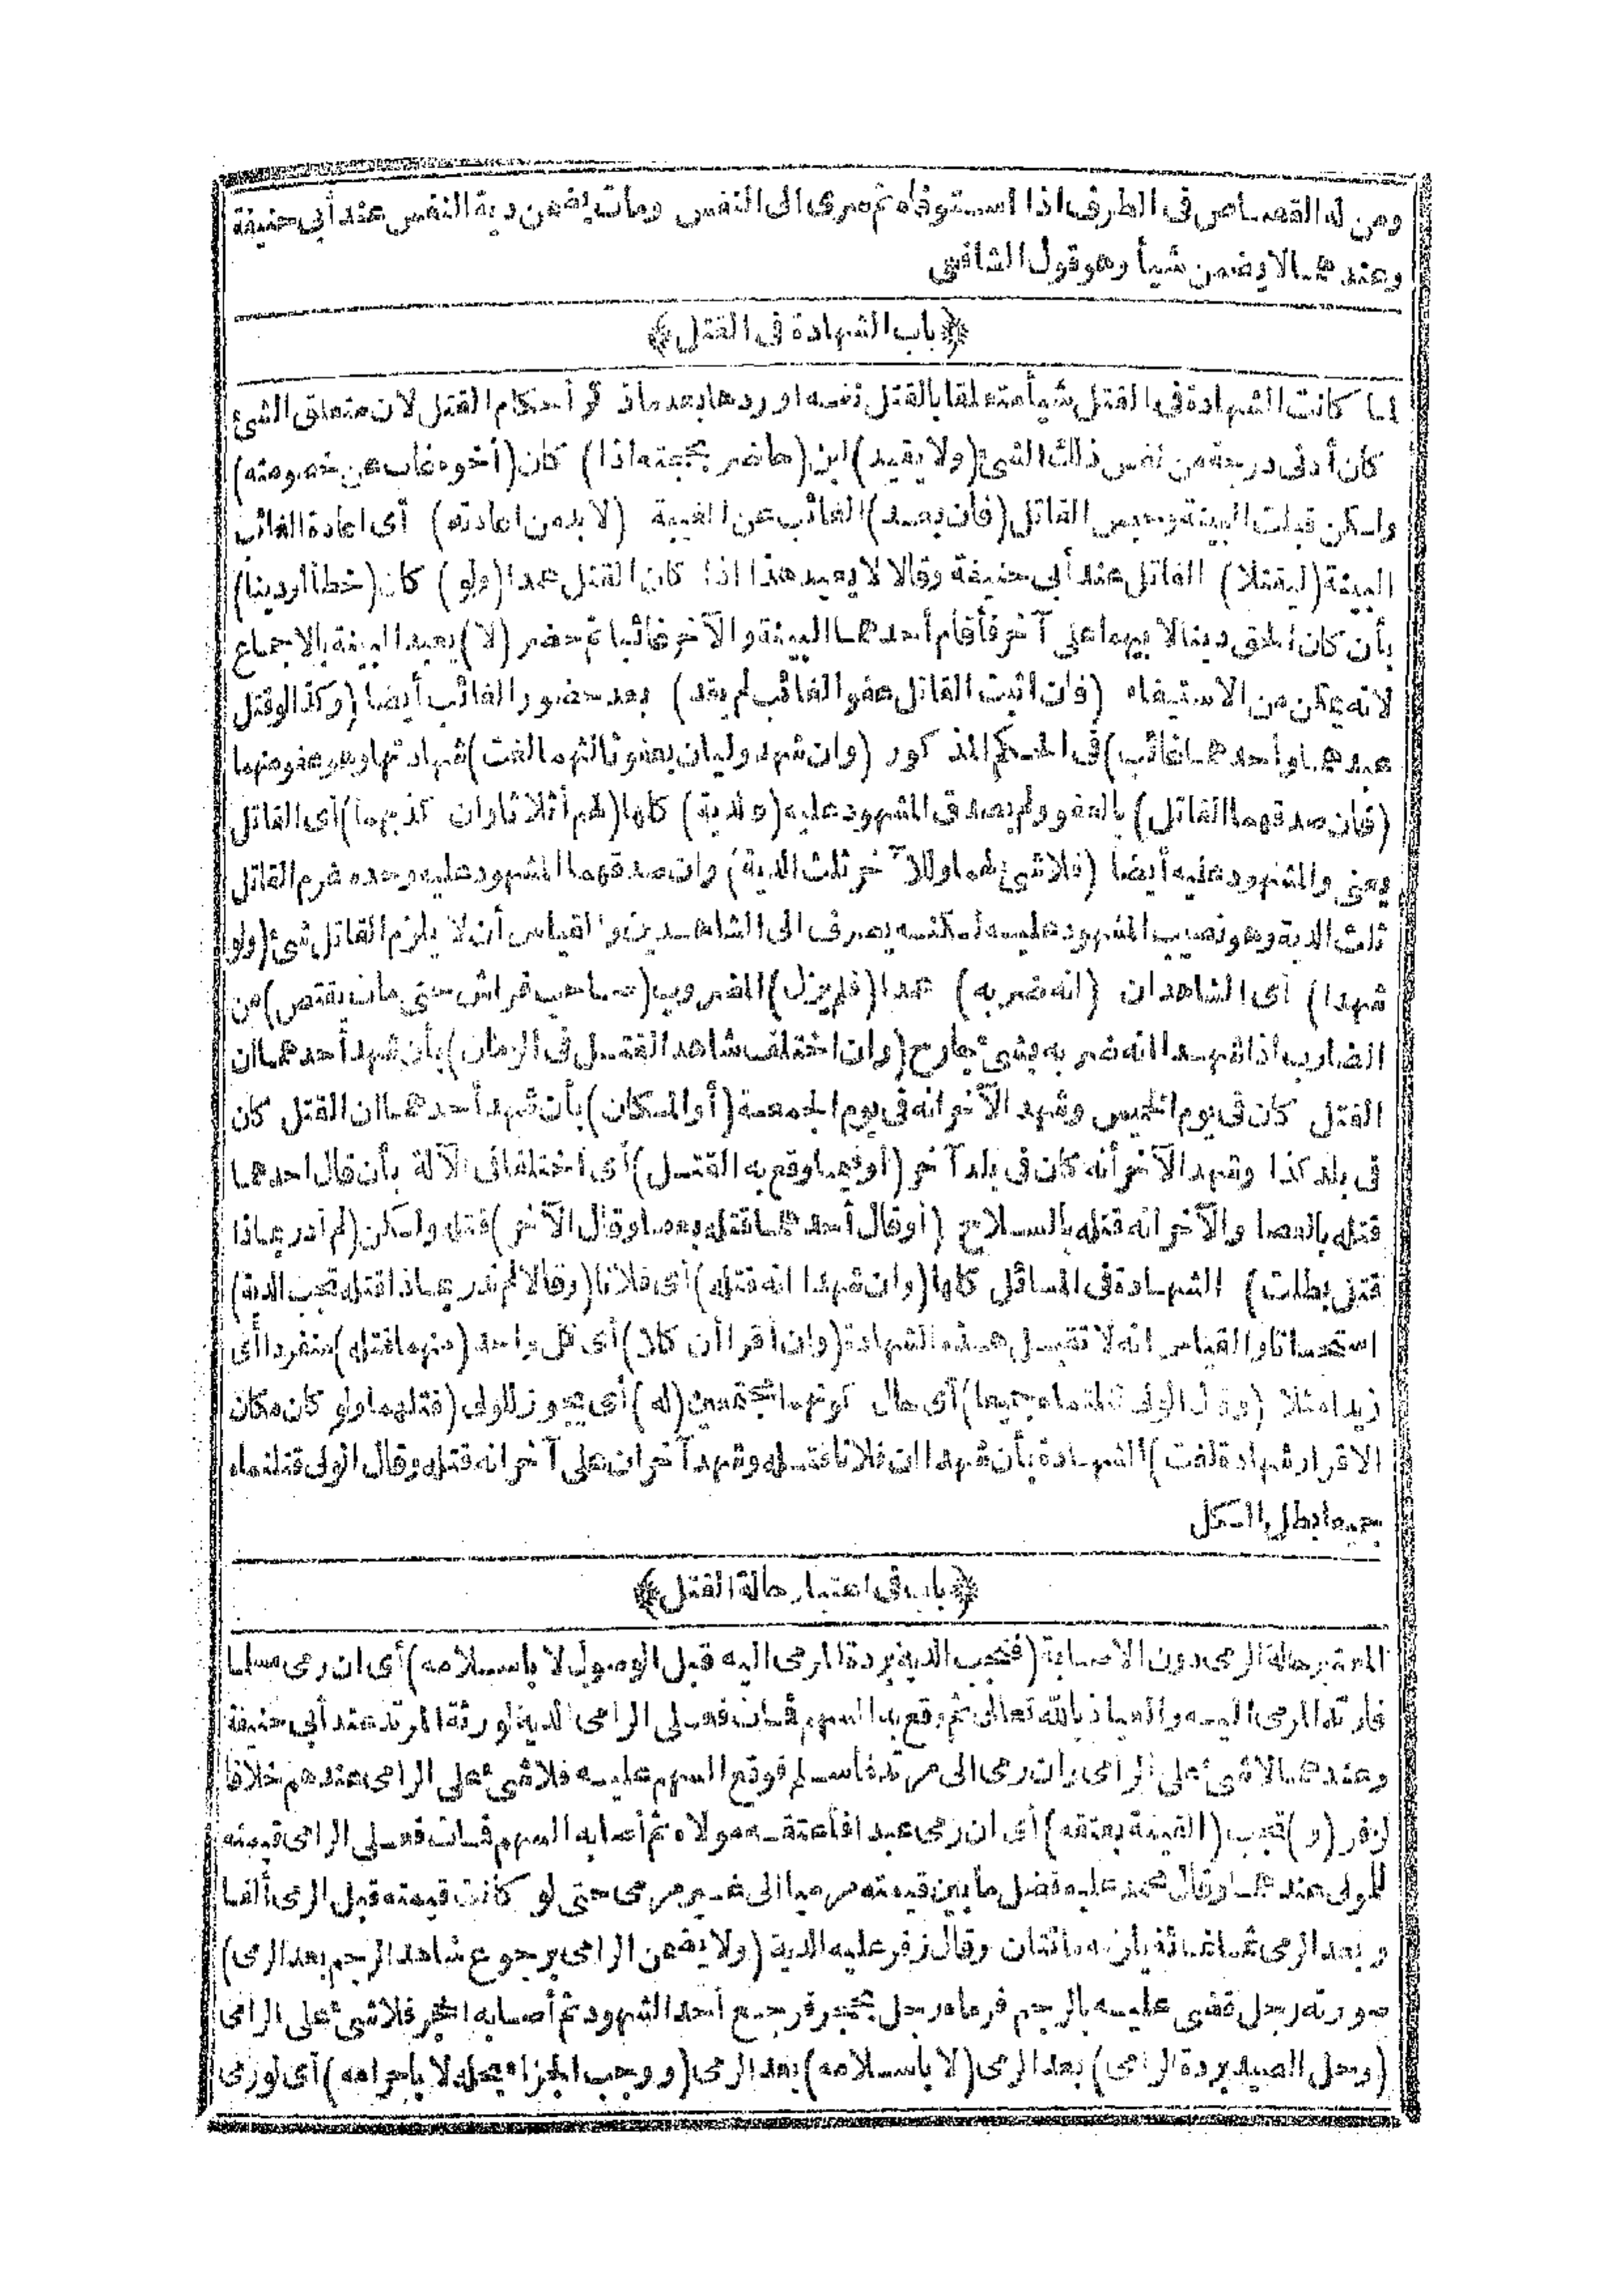 ومن له القصاص فى الطرف اذا استوفاه ثم سرى الى النفس ومات يضمن دية النفس عند أبى حنيفة
وعندهما لا يضمن شيأ وهو قول الشافعى
﴿باب الشهادة فى القتل﴾
لما كانت الشهادة فى القتل شيأ متعلقا بالقتل نفسه اوردها بعد ماذكر أحكام القتل لان متعلق الشئ
كان أدنى درجة من نفس ذلك الشئ (ولا يقيد) ابن (حاضر بحجته اذا) كان (أخوه غاب عن خصومته)
ولكن قبلت البينة وحبس القاتل (فان يعد) الغائب عن الغيبة (لا بد من اعادته) أى اعادة الغائب
البينة (ليقتلا) القاتل عند أبى حنيفة وقالا لا يعيد هذا اذا كان القتل عمدا (ولو) كان (خطأ أو دينا)
بأن كان الحق دينا لابيهما على آخر فأقام أحدهما البينة والآخر غائبا ثم حضر (لا) يعيد البينة بالاجماع
لانه يمكن من الاستيفاء (فان اثبت القاتل عفو الغائب لم يقد) بعد حضور الغائب أيضا (وكذا لو قتل
عبدهما وأحدهما غائب) فى الحكم المذكور (وان شهد وليان بعفو ثالثهما لغت) شهادتها وهو عفو منهما
(فان صدقهما القاتل) بالعفو ولم يصدق المشهود عليه (فالدية) كلها (لهم أثلاثا وان كذبهما) أى القاتل
يعنى والمشهود عليه أيضا (فلا شئ لهما وللآخر ثلث الدية) وان صدقهما المشهود عليه وحده غرم القاتل
ثلث الدية وهو نصيب المشهود عليه لكنه يصرف الى الشاهدين والقياس أن لا يلزم القاتل شئ (ولو
شهدا) أى الشاهدان (انه ضربه) عمدا (فلم يزل) المضروب (صاحب فراش حتى مات يقتص) من
الضارب اذا شهدا انه ضربه بشئ جارح (وان اختلف شاهدا القتل فى الزمان) بأن شهد أحدهما ان
القتل كان فى يوم الخميس وشهد الآخر انه فى يوم الجمعة (أو المكان) بأن شهد أحدهما ان القتل كان
فى بلد كذا وشهد الآخر أنه كان فى بلد آخر (أو فيما وقع به القتل) أى اختلفا فى الآلة بأن قال احدهما
قتله بالعصا والآخر انه قتله بالسلاح (أو قال أحدهما قتله بعصا وقال الآخر) قتله ولكن (لم أدر بماذا
قتل بطلت) الشهادة فى المسائل كلها (وان شهدا انه قتله) أى فلانا (وقالا لم ندر بماذا قتله تجب الدية)
استحسانا والقياس انه لا تقبل هذه الشهادة (وان أقرا أن كلا) أى كل واحد (منهما قتله) منفردا أى
زيدا مثلا (وقال الولى قتلتماه جميعا) أى حال كونهما مجتمعين (له) أى يجوز للولى (قتلهما ولو كان مكان
الاقرار شهادة لغت) الشهادة بأن شهدا ان فلانا قتله وشهد آخران على آخر انه قتله وقال الولى قتلتماه
جميعا بطل الكل
﴿باب فى اعتبار حالة القتل﴾
المعتبر حالة الرمى دون الاصابة (فتجب الدية بردة المرمى اليه قبل الوصول لا باسلامه) أى ان رمى مسلما
فارتد المرمى اليه والعياذ بالله تعالى ثم وقع به السهم فمات فعلى الرامى الدية لورثة المرتد عند أبى حنيفة
وعندهما لا شئ على الرامى وان رمى الى مرتد فأسلم فوقع السهم عليه فلا شئ على الرامى عندهم خلافا
لزفر (و) تجب (القيمة بعتقه) أى ان رمى عبدا فأعتقه مولاه ثم أصابه السهم فمات فعلى الرامى قيمته
للمولى عندهما وقال محمد عليه فضل ما بين قيمته مرميا الى غير مرمى حتى لو كانت قيمته قبل الرمى ألفا
وبعد الرمى ثمانمائة يلزمه مائتان وقال زفر عليه الدية (ولا يضمن الرامى برجوع شاهد الرجم بعد الرمى)
صورته رجل قضى عليه بالرجم فرماه رجل بحجر فرجع أحد الشهود ثم أصابه الحجر فلا شئ على الرامى
(وحل الصيد بردة الرامى) بعد الرمى (لا باسلامه) بعد الرمى (ووجب الجزاء بحله لا باحرامه) أى لو رمى